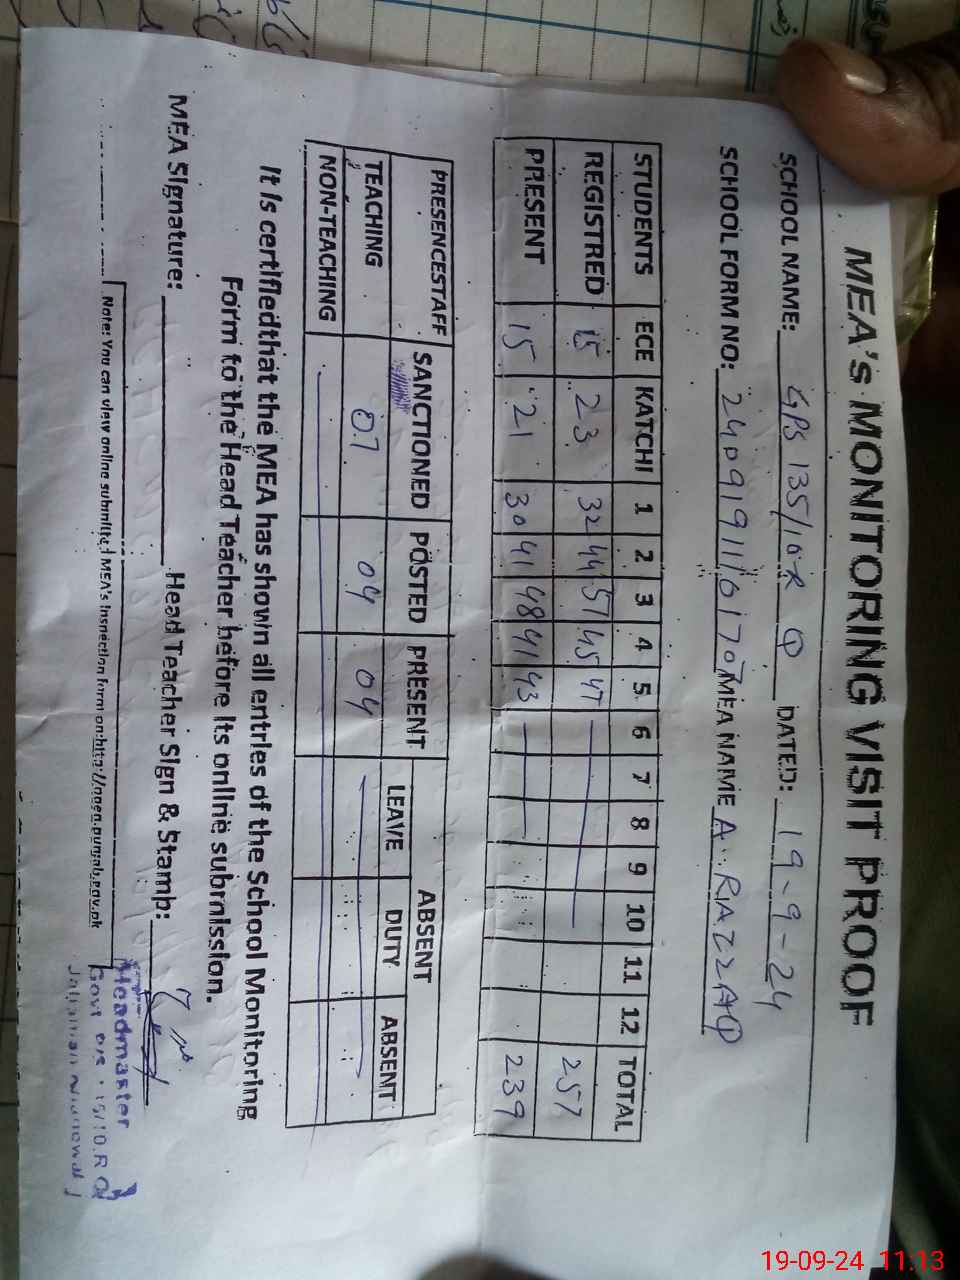 MEA's MONITORING VISIT PROOF
SCHOOL NAME: GPS 135/10R Q DATED: 19-9-24
SCHOOL FORM NO: MEA NAME A. RAZZAQ
STUDENTS ECE KATCHI 1 2 3 4 5 6 7 8 9 10 11 12 TOTAL
REGISTRED 15 23 32 44 51 45 47 257
PRESENT 15 21 30 41 48 41 43 239
PRESENCESTAFF SANCTIONED POSTED PRESENT ABSENT
LEAVE DUTY ABSENT
TEACHING 07 04 04
NON-TEACHING
It is certifiedthat the MEA has shown all entries of the School Monitoring
Form to the Head Teacher before its online submission.
MEA Signature: Head Teacher Sign & Stamp:
Note: You can view online submitted MEA's Inspection form on:
Headmaster
19-09-24 11:13